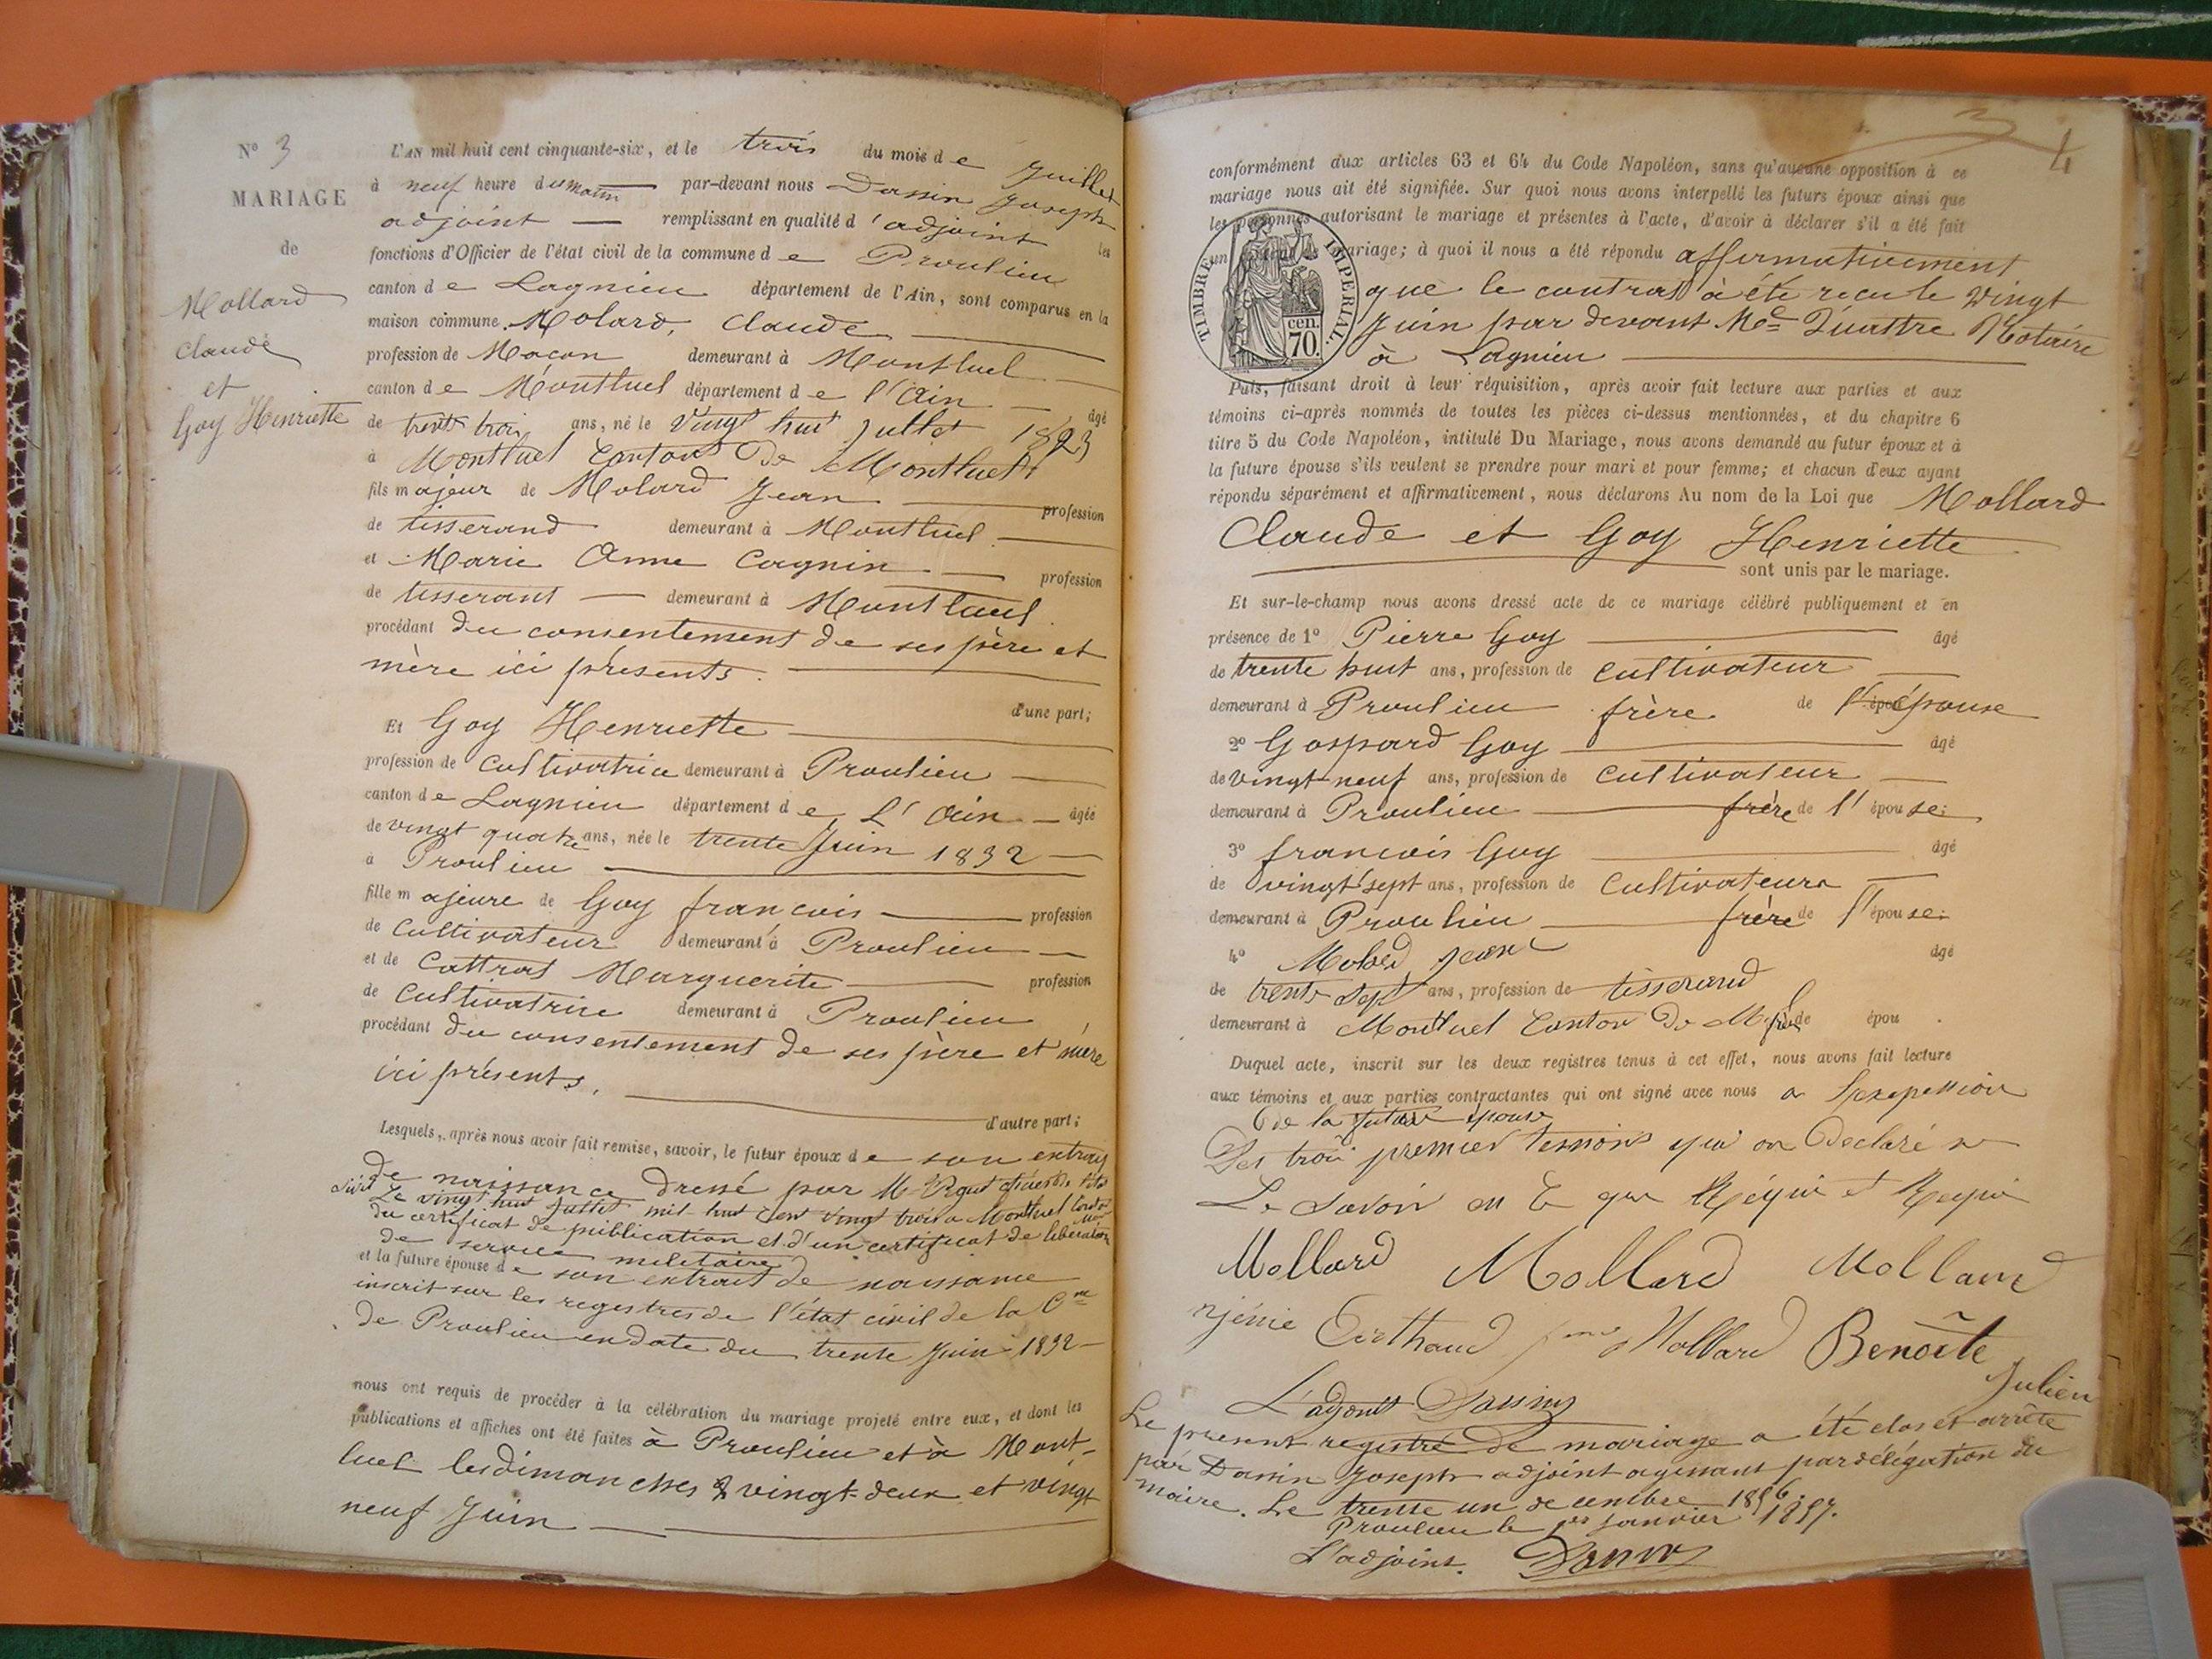 N° 3
MARIAGE
de
Mollard
Claude
et
Goy Henriette
L'AN mil huit cent cinquante-six, et le trois du mois de Juillet
à neuf heure du matin par-devant nous Dassin Joseph
adjoint remplissant en qualité d'adjoint les
fonctions d'Officier de l'état civil de la commune de Proulieu
canton de Lagnieu département de l'Ain, sont comparus en la
maison commune Molard, Claude
profession de Maçon demeurant à Montluel
canton de Montluel département de l'Ain âgé
de trente trois ans, né le vingt huit Juillet 1823
à Montluel Canton De Montluel
fils majeur de Molard Jean profession
de tisserand demeurant à Montluel
et Marie Anne Cagnin profession
de tisserant demeurant à Montluel
procédant du consentement de ses père et
mère ici présents.
d'une part;
Et Goy Henriette
profession de Cultivatrice demeurant à Proulieu
canton de Lagnieu département de L'Ain âgée
de vingt quatre ans, née le trente Juin 1832
à Proulieu
fille majeure de Goy françois profession
de Cultivateur demeurant à Proulieu
et de Cattras Marguerite profession
de Cultivatrice demeurant à Proulieu
procédant du consentement de ses père et mère
ici présents.
d'autre part;
Lesquels, après nous avoir fait remise, savoir, le futur époux de son extrait
de naissance Dressé par M.
Le vingt huit Juillet mil huit cent vingt trois a Montluel
du certificat de publication et d'un certificat de libération
de service militaire
et la future épouse de son extrait de naissance
inscrit sur les registres de l'état civil de la Cne
de Proulieu en date du trente Juin 1832
nous ont requis de procéder à la célébration du mariage projeté entre eux, et dont les
publications et affiches ont été faites à Proulieu et à Mont-
luel les dimanches vingt-deux et vingt
neuf Juin
3
4
conformément aux articles 63 et 64 du Code Napoléon, sans qu'aucune opposition à ce
mariage nous ait été signifiée. Sur quoi nous avons interpellé les futurs époux ainsi que
les personnes autorisant le mariage et présentes à l'acte, d'avoir à déclarer s'il a été fait
un mariage; à quoi il nous a été répondu affirmativement
TIMBRE IMPÉRIAL.
cen.
70.
que le contrat à été recu le vingt
Juin par devant Me Quastre Notaire
à Lagnieu
Puis, faisant droit à leur réquisition, après avoir fait lecture aux parties et aux
témoins ci-après nommés de toutes les pièces ci-dessus mentionnées, et du chapitre 6
titre 5 du Code Napoléon, intitulé Du Mariage, nous avons demandé au futur époux et à
la future épouse s'ils veulent se prendre pour mari et pour femme; et chacun d'eux ayant
répondu séparément et affirmativement, nous déclarons Au nom de la Loi que Mollard
Claude et Goy Henriette
sont unis par le mariage.
Et sur-le-champ nous avons dressé acte de ce mariage célébré publiquement et en
présence de 1° Pierre Goy âgé
de trente huit ans, profession de cultivateur
demeurant à Proulieu frère de l'épouse
2° Gaspard Goy âgé
de vingt-neuf ans, profession de cultivateur
demeurant à Proulieu frère de l'épouse;
3° françois Goy âgé
de vingt sept ans, profession de Cultivateur
demeurant à Proulieu frère de l'épouse;
4° Molard Jean âgé
de trente sept ans, profession de tisserand
demeurant à Montluel Canton De M de épou .
Duquel acte, inscrit sur les deux registres tenus à cet effet, nous avons fait lecture
aux témoins et aux parties contractantes qui ont signé avec nous a l'exeption
De la future épouse
Des trois premier temoins qui on Declaré ne
Le Savoir
Mollard Mollard Mollard
Mollard Benoîte
Julien
L'adjoint Dassin
Le présent registre de mariage a été clos et arrêté
par Dassin Joseph adjoint agissant par délégation du
maire. Le trente un decembre 1856.
Proulieu le 1er Janvier 1857.
L'adjoint. Dassin